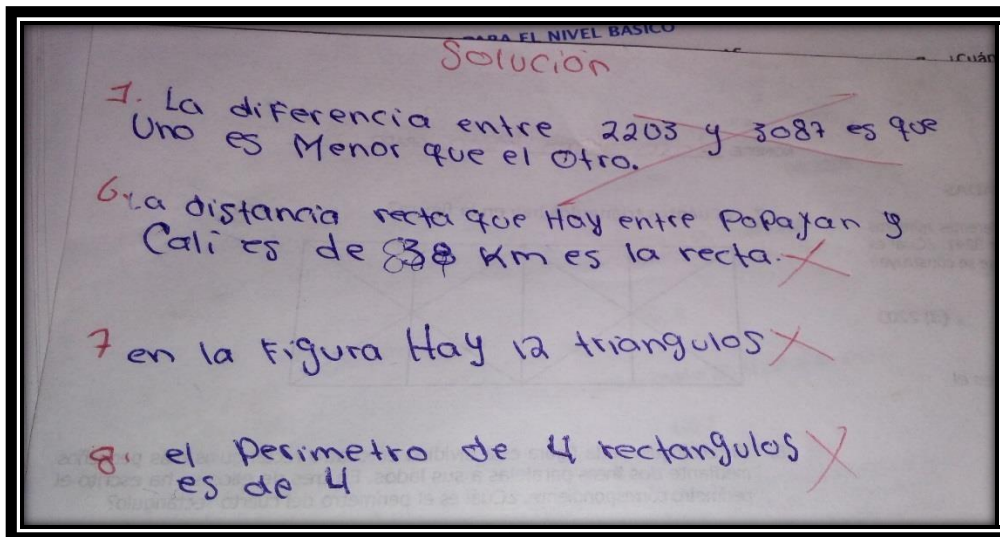 PARA EL NIVEL BÁSICO
¿Cuán
Solución
1. La diferencia entre 2203 y 3087 es que
Uno es Menor que el Otro.
6. La distancia recta que Hay entre Popayan y
Cali es de Km es la recta.
7 en la Figura Hay 12 triangulos
8. el Perimetro de 4 rectangulos
es de 4